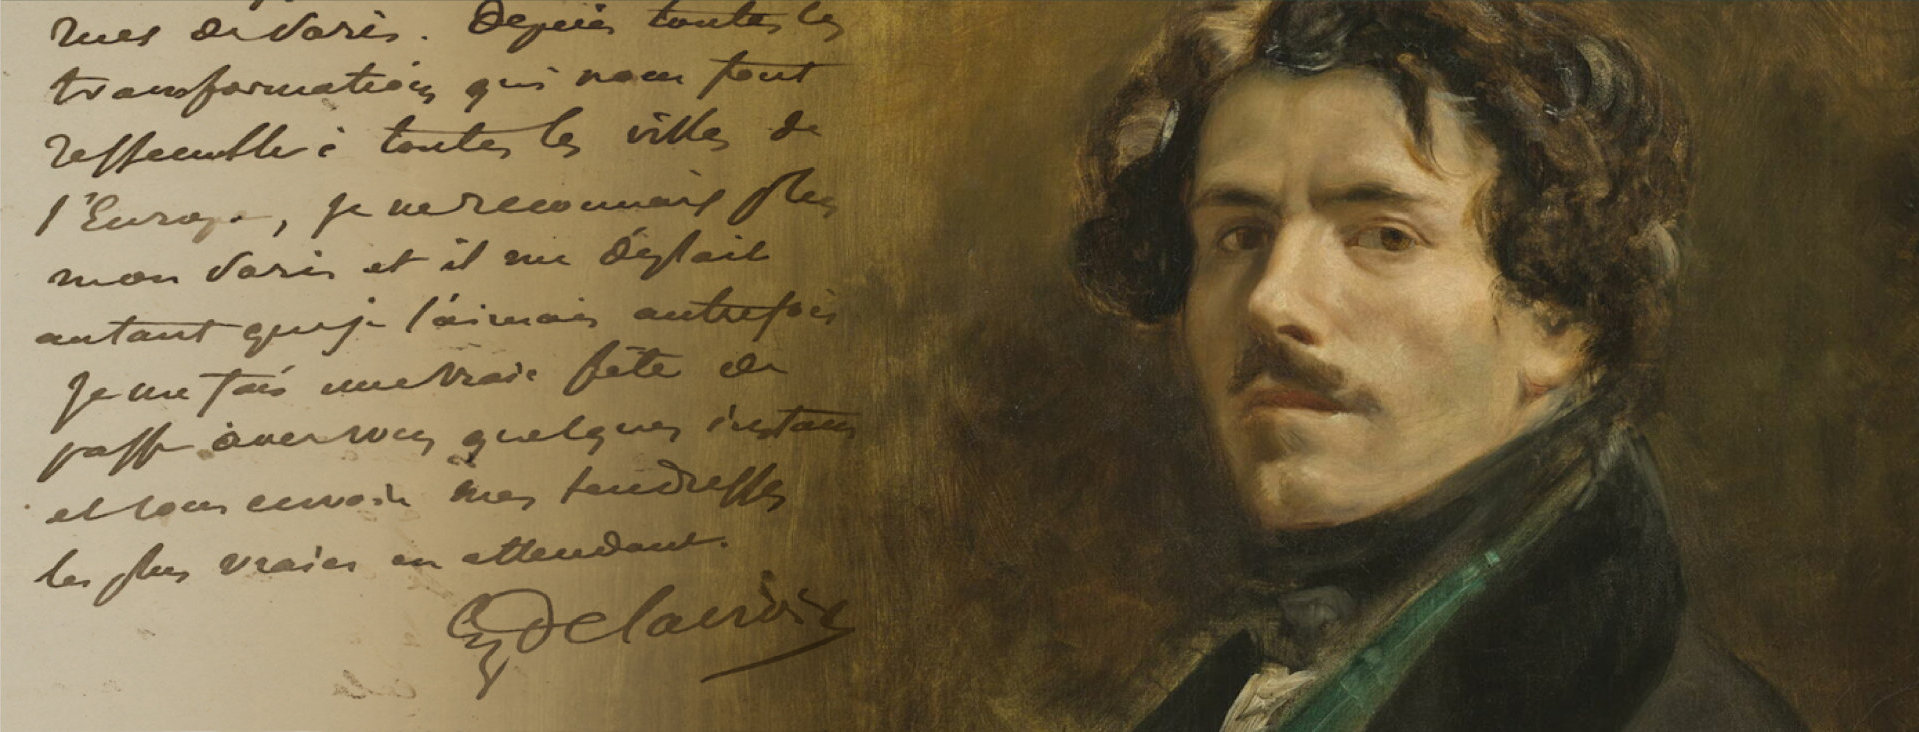 rues de Paris. Depuis toutes les
transformations qui nous font
ressembler à toutes les villes de
l'Europe, je ne reconnais plus
mon Paris et il me déplait
autant que je l'aimais autrefois
Je me fais une vraie fête de
passer avec vous quelques instans
et vous envoie mes tendresses
les plus vraies en attendant.
Eug Delacroix